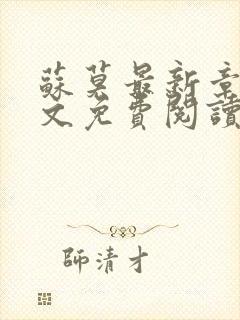 蘇莫最新章
文免費閱讀
師清才